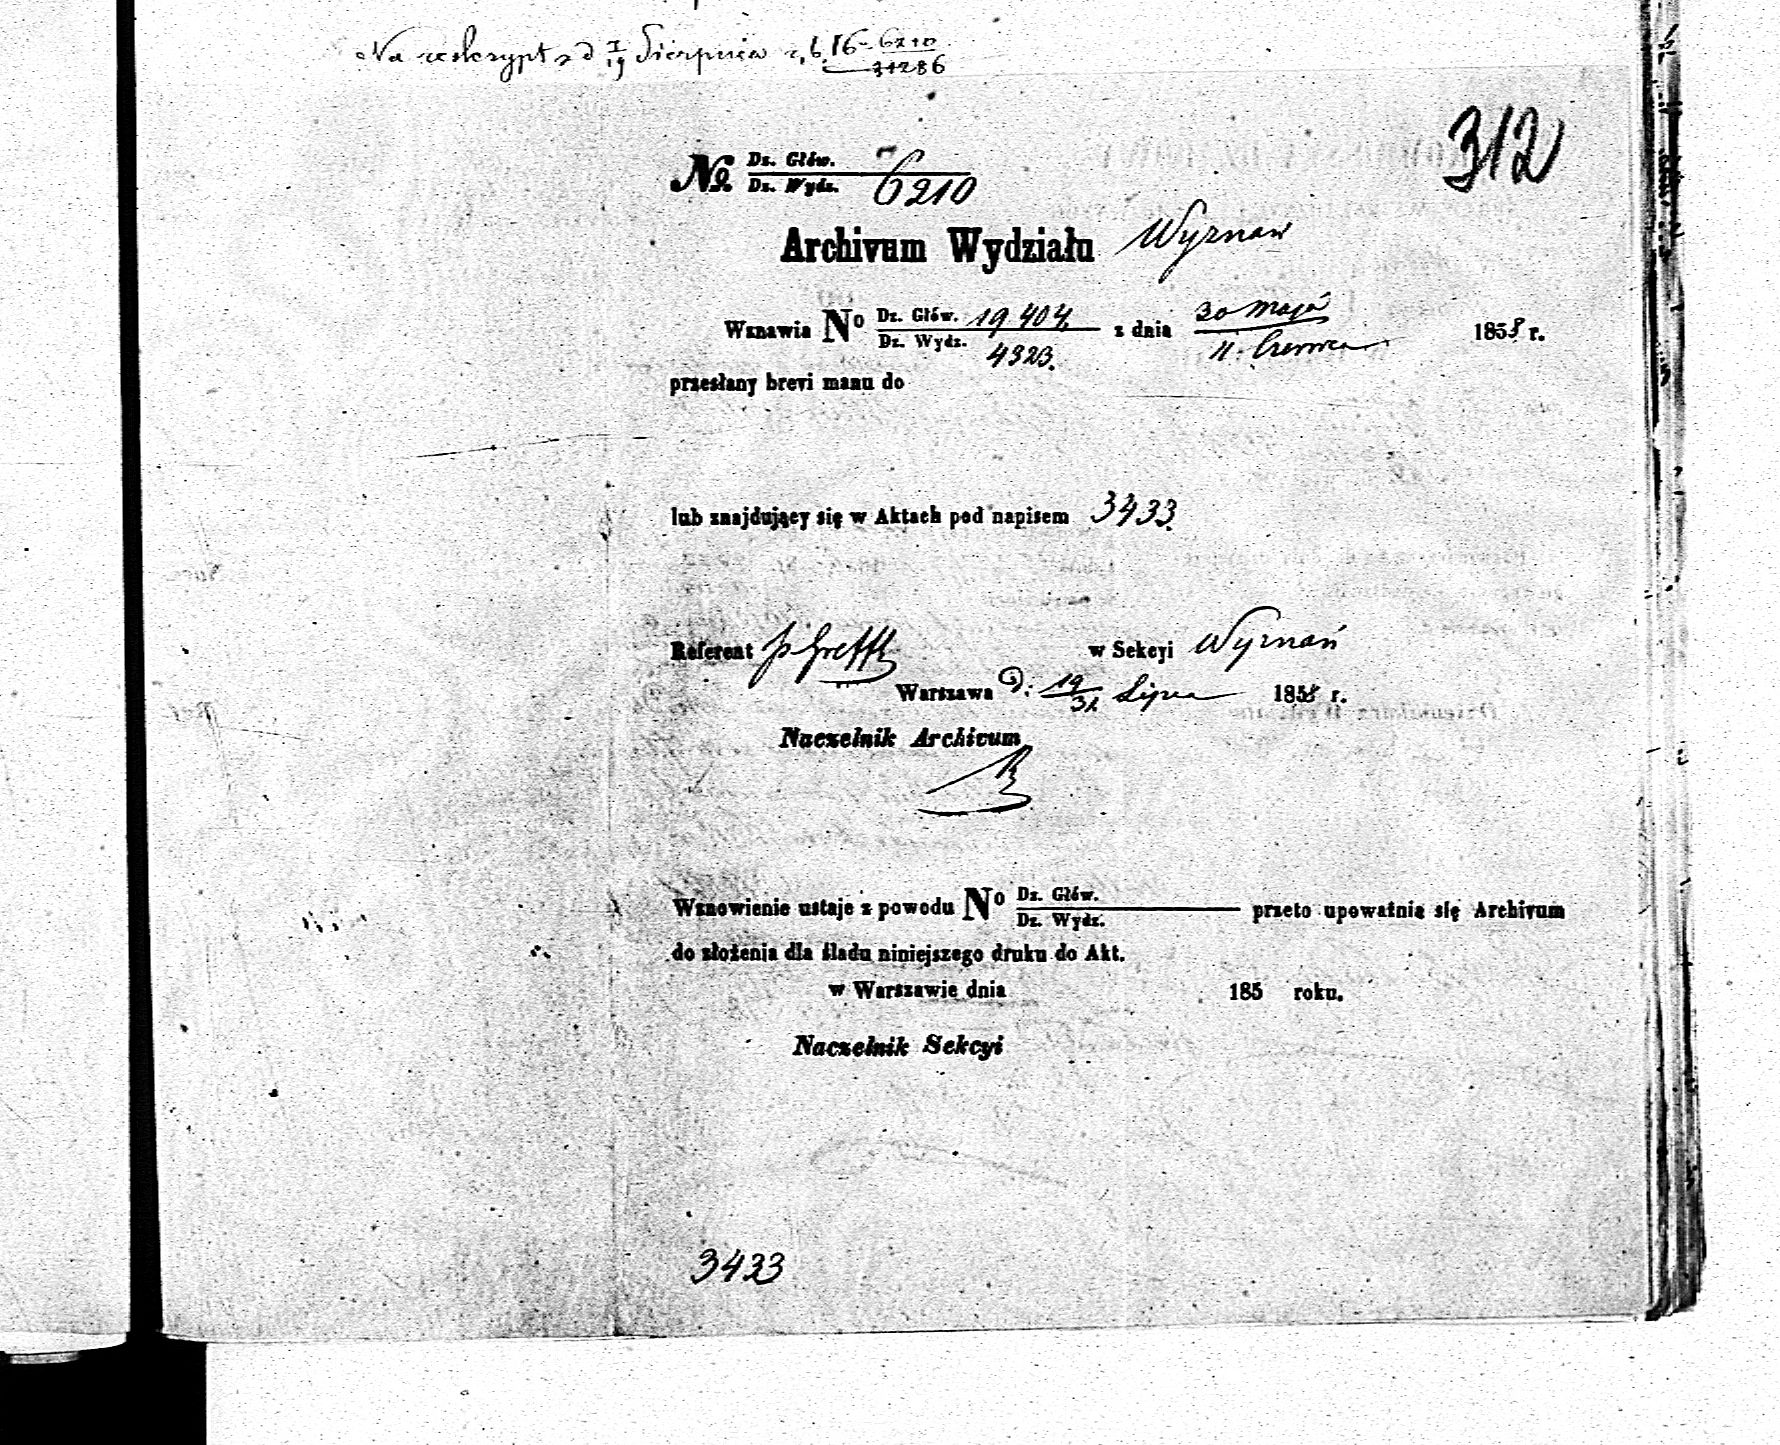 Na reskrypt z d 7/19 Sierpnia r. b. 16-6210/31286
312
№ Dz. Głów. / Dz. Wydz. 6210
Archivum Wydziału Wyznań
Wznawia No Dz. Głów. 19404. / Dz. Wydz. 4323. z dnia 30 Maja / 11. Czerwca 1858 r.
przesłany brevi manu do
lub znajdujący się w Aktach pod napisem 3433.
Referent w Sekcyi Wyznań
Warszawa d: 19/31 Lipca 1858 r.
Naczelnik Archivum
Wznowienie ustaje z powodu No Dz. Głów. / Dz. Wydz. przeto upoważnia się Archivum
do złożenia dla śladu niniejszego druku do Akt.
w Warszawie dnia 185 roku.
Naczelnik Sekcyi
3433